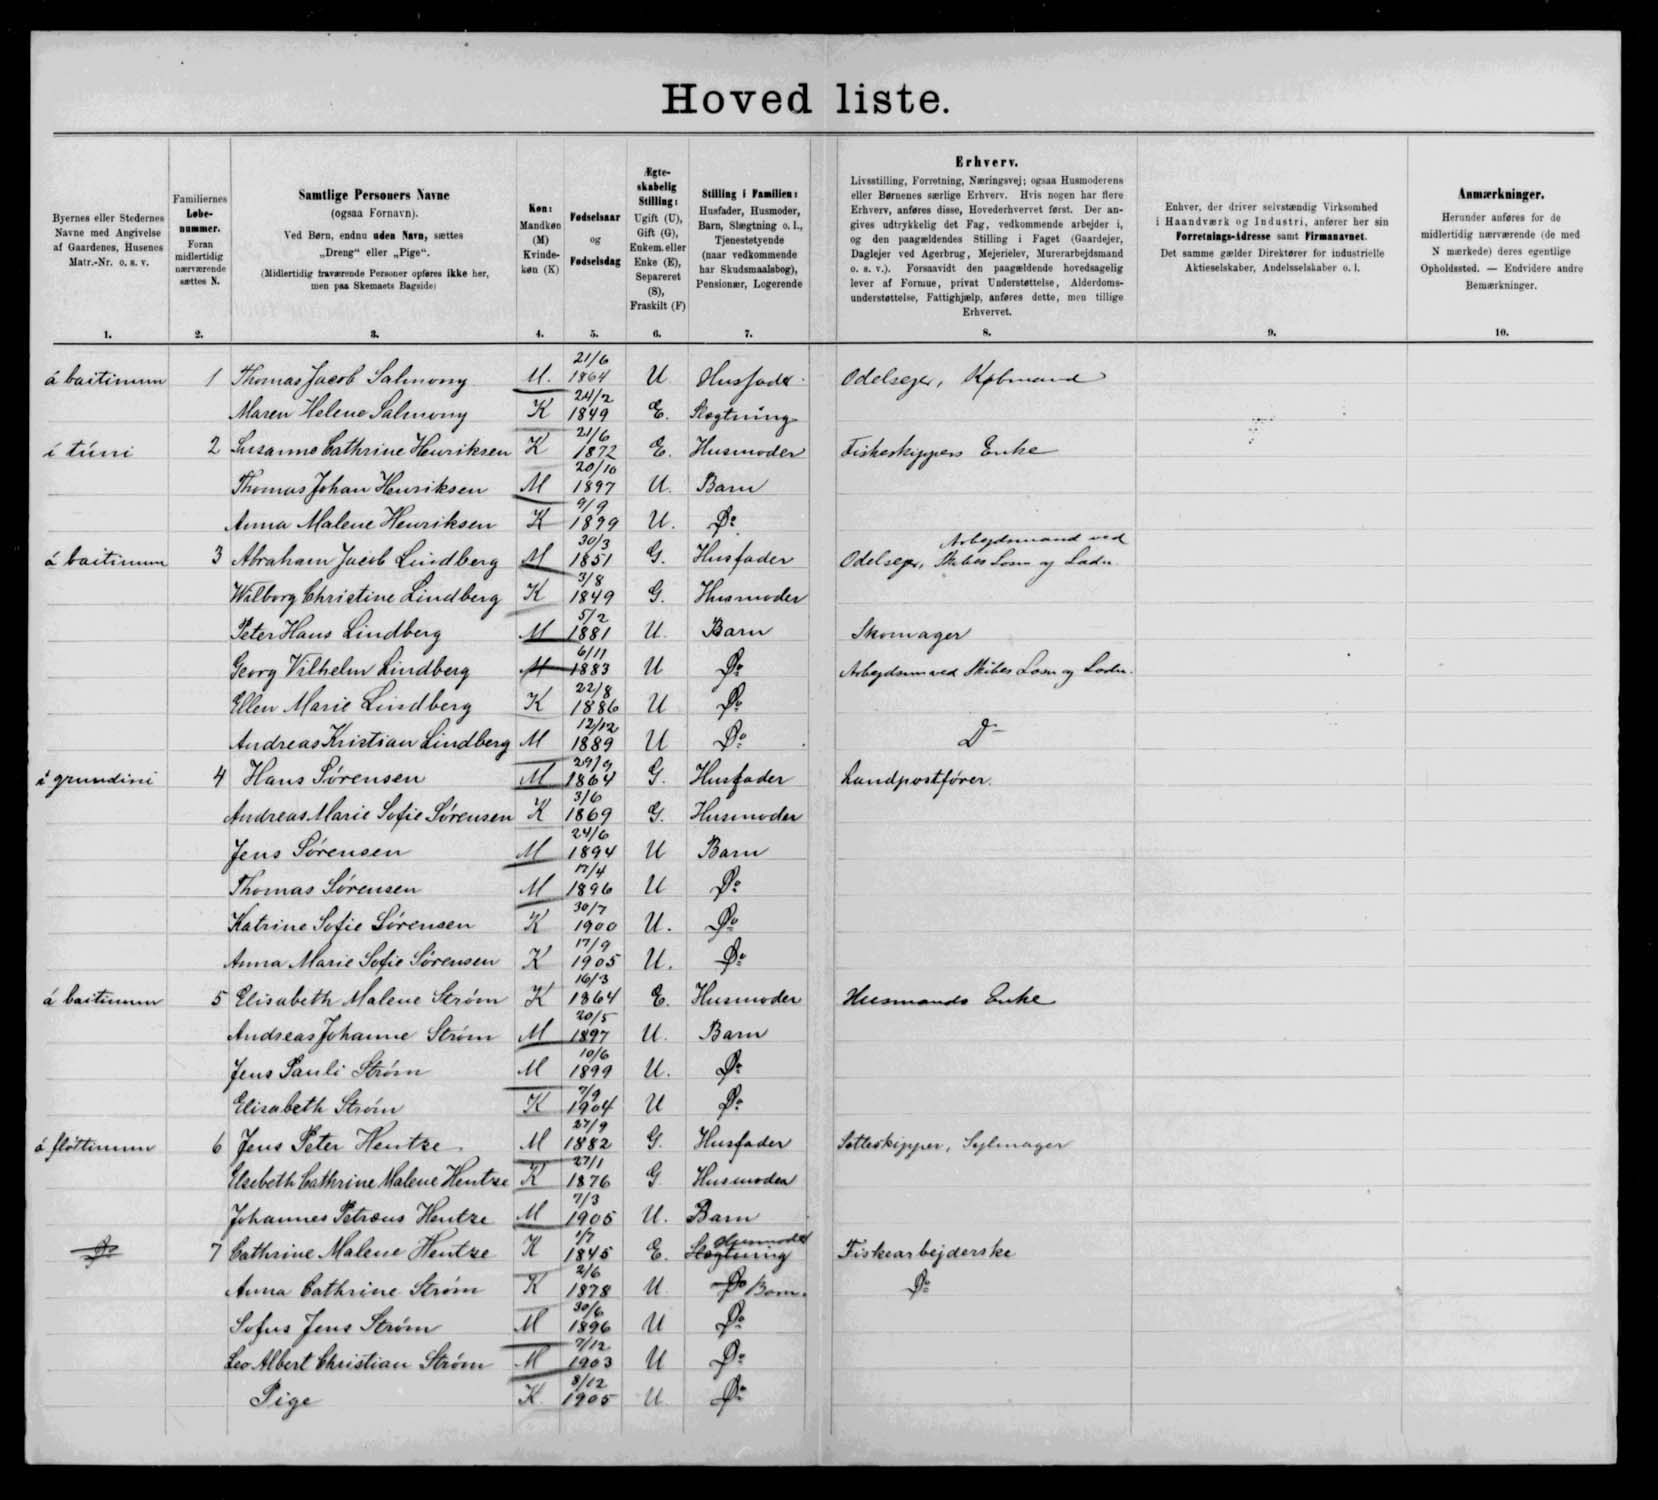 Hovedliste.
Byernes eller Stedernes Navne med Angivelse af Gaardenes, Husenes Matr.-Nr. o. s. v.
Familiernes Løbe-nummer. Foran midlertidig nærværende sættes N.
Samtlige Personers Navne
(ogsaa Fornavn).
Ved Børn, endnu uden Navn, sættes
„Dreng“ eller „Pige“.
(Midlertidig fraværende Personer opføres ikke her,
men paa Skemaets Bagside)
Køn: Mandkøn (M) Kvinde-køn (K)
Fødselsaar og Fødselsdag
Ægte-skabelig Stilling: Ugift (U), Gift (G), Enkem. eller Enke (E), Separeret (S), Fraskilt (F)
Stilling i Familien:
Husfader, Husmoder,
Barn, Slægtning o. l.,
Tjenestetyende
(naar vedkommende
har Skudsmaalsbog),
Pensionær, Logerende
Erhverv.
Livsstilling, Forretning, Næringsvej; ogsaa Husmoderens
eller Børnenes særlige Erhverv. Hvis nogen har flere
Erhverv, anføres disse, Hovederhvervet først. Der an-
gives udtrykkelig det Fag, vedkommende arbejder i,
og den paagældendes Stilling i Faget (Gaardejer,
Daglejer ved Agerbrug, Mejerielev, Murerarbejdsmand
o. s. v.). Forsaavidt den paagældende hovedsagelig
lever af Formue, privat Understøttelse, Alderdoms-
understøttelse, Fattighjælp, anføres dette, men tillige
Erhvervet.
Enhver, der driver selvstændig Virksomhed
i Haandværk og Industri, anfører her sin
Forretnings-Adresse samt Firmanavnet.
Det samme gælder Direktører for industrielle
Aktieselskaber, Andelsselskaber o. l.
Anmærkninger.
Herunder anføres for de
midlertidig nærværende (de med
N mærkede) deres egentlige
Opholdssted. — Endvidere andre
Bemærkninger.
1. 2. 3. 4. 5. 6. 7. 8. 9. 10.
á baitinum 1 Thomas Jacob Salmony M. 21/6 1864 U Husfader. Odelsejer, Købmand
Maren Helene Salmony K 24/2 1849 E. Slægtning
í túni 2 Susanne Cathrine Henriksen K 21/6 1872 E. Husmoder Fiskeskippers Enke
Thomas Johan Henriksen M 20/10 1897 U. Barn
Anna Malene Henriksen K 9/9 1899 U. Do
á baitinum 3 Abraham Jacob Lindberg M 30/3 1851 G. Husfader Odelsejer, Arbejdsmand ved Skibes Losn og Ladn.
Wilborg Christine Lindberg K 3/8 1849 G. Husmoder
Peter Hans Lindberg M 5/2 1881 U. Barn Skomager
Georg Vilhelm Lindberg M 6/11 1883 U Do Arbejdsm ved Skibes Losn og Ladn.
Ellen Marie Lindberg K 22/8 1886 U Do
Andreas Kristian Lindberg M 12/12 1889 U Do. Do
í grundini 4 Hans Sørensen M 29/9 1864 G. Husfader Landpostfører.
Andreas Marie Sofie Sørensen K 3/6 1869 G. Husmoder
Jens Sørensen M 24/6 1894 U Barn
Thomas Sørensen M 17/4 1896 U Do
Katrine Sofie Sørensen K 30/7 1900 U. Do
Anna Marie Sofie Sørensen K 17/9 1905 U. Do
á baitinum 5 Elisabeth Malene Strøm K 16/3 1864 E. Husmoder Husmands Enke
Andreas Johanne Strøm M 20/5 1897 U. Barn
Jens Pauli Strøm M 10/6 1899 U. Do
Elisabeth Strøm K 7/9 1904 U Do
á fløttinum 6 Jens Peter Hentze M 27/9 1882 G. Husfader Sætteskipper, Sejlmager
Elsebeth Cathrine Malene Hentze K 27/1 1876 G Husmoder
Johannes Petræus Hentze M 7/3 1905 U. Barn
Do 7 Cathrine Malene Hentze K 1/7 1845 E. Slægtning Husmoder Fiskearbejderske
Anna Cathrine Strøm K 2/6 1878 U Do Barn. Do
Sofus Jens Strøm M 30/6 1896 U Do
Leo Albert Christian Strøm M 7/12 1903 U Do
Pige K 8/12 1905 U Do